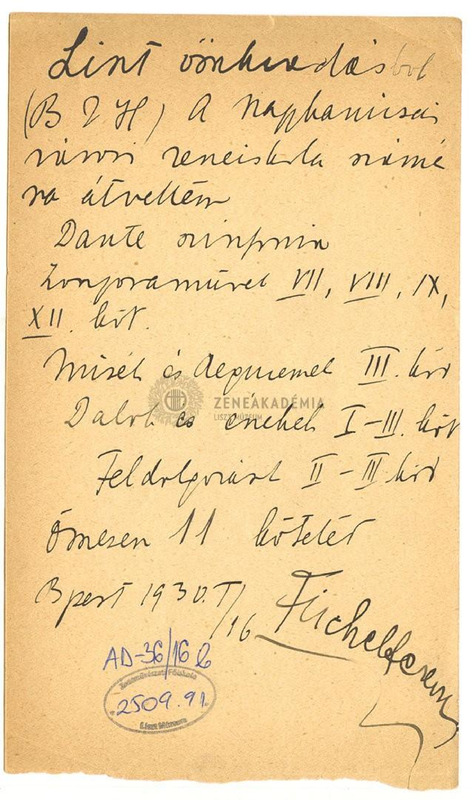 Liszt összkiadásból
(B & H) A nagykanizsai
városi zeneiskola számá
ra átvettem
Dante szinfonia
Zongoraművek VII, VIII, IX,
XII. köt.
Misék és Requiemek III. köt
ZENEAKADÉMIA
LISZT MÚZEUM
Dalok és énekek I-III. köt
Feldolgozások II-III köt
Összesen 11 kötetet
Bpest 1930. I/16
AD-36/16 b
Zeneművészeti Főiskola
2509.91.
Liszt Múzeum